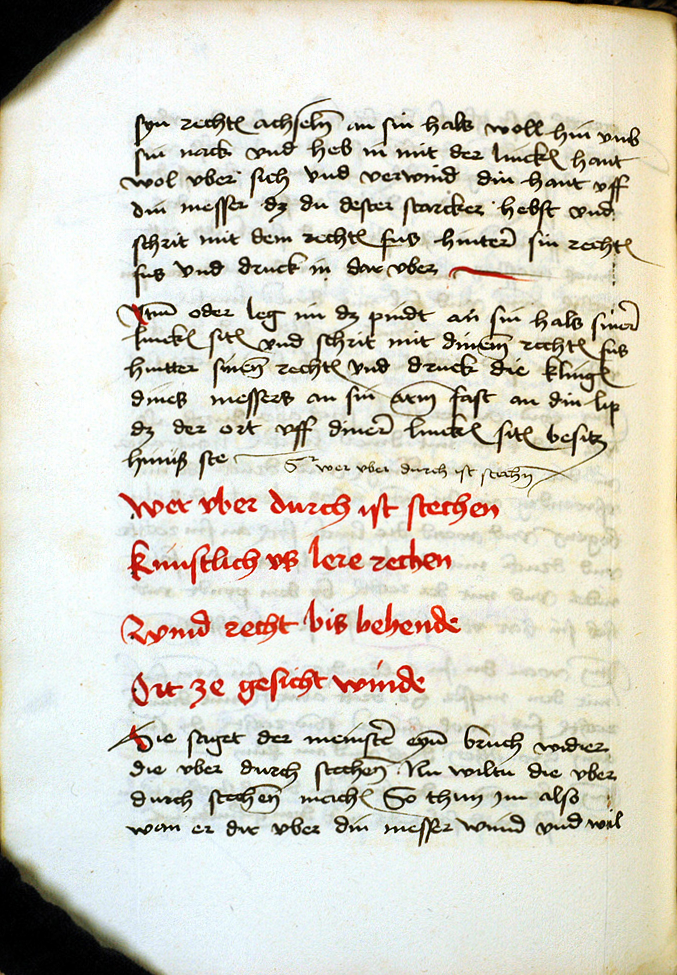 syn rechtē achselñ an sin hals woll hin vmb
sin nack vnd heb in mit der linckē hant
wol vber sich vnd verwind din hant vff
din messer dz du dester starcker hebst vnd
schrit mit dem rechtē fus hinterñ sin rechtē
fus vnd druck in dar vber
Itm̄ oder leg im dz pindt an sin hals sinerr̄
linckē sitē vnd schrit mit dinem̄ rechtē fus
hintter sinem̄ rechtē vnd druck die klingē
dines messers an sin arm̄ fast an din lip
dz der ort vff dinerr̄ linckē sitē besitz
hinuß ste
wer vber durch ist stechñ
Wer vber durch ist stechen
Kunstlich vß lere rechen
Wind recht bis behende
Ort ze gesicht winde
Hie saget der meinstr̄ eyñ bruch widier
die vber durch stechen̄ Nu wiltu die vber
durch stechen̄ machē So thun im also
wan er dir vber din messer wind vnd wil